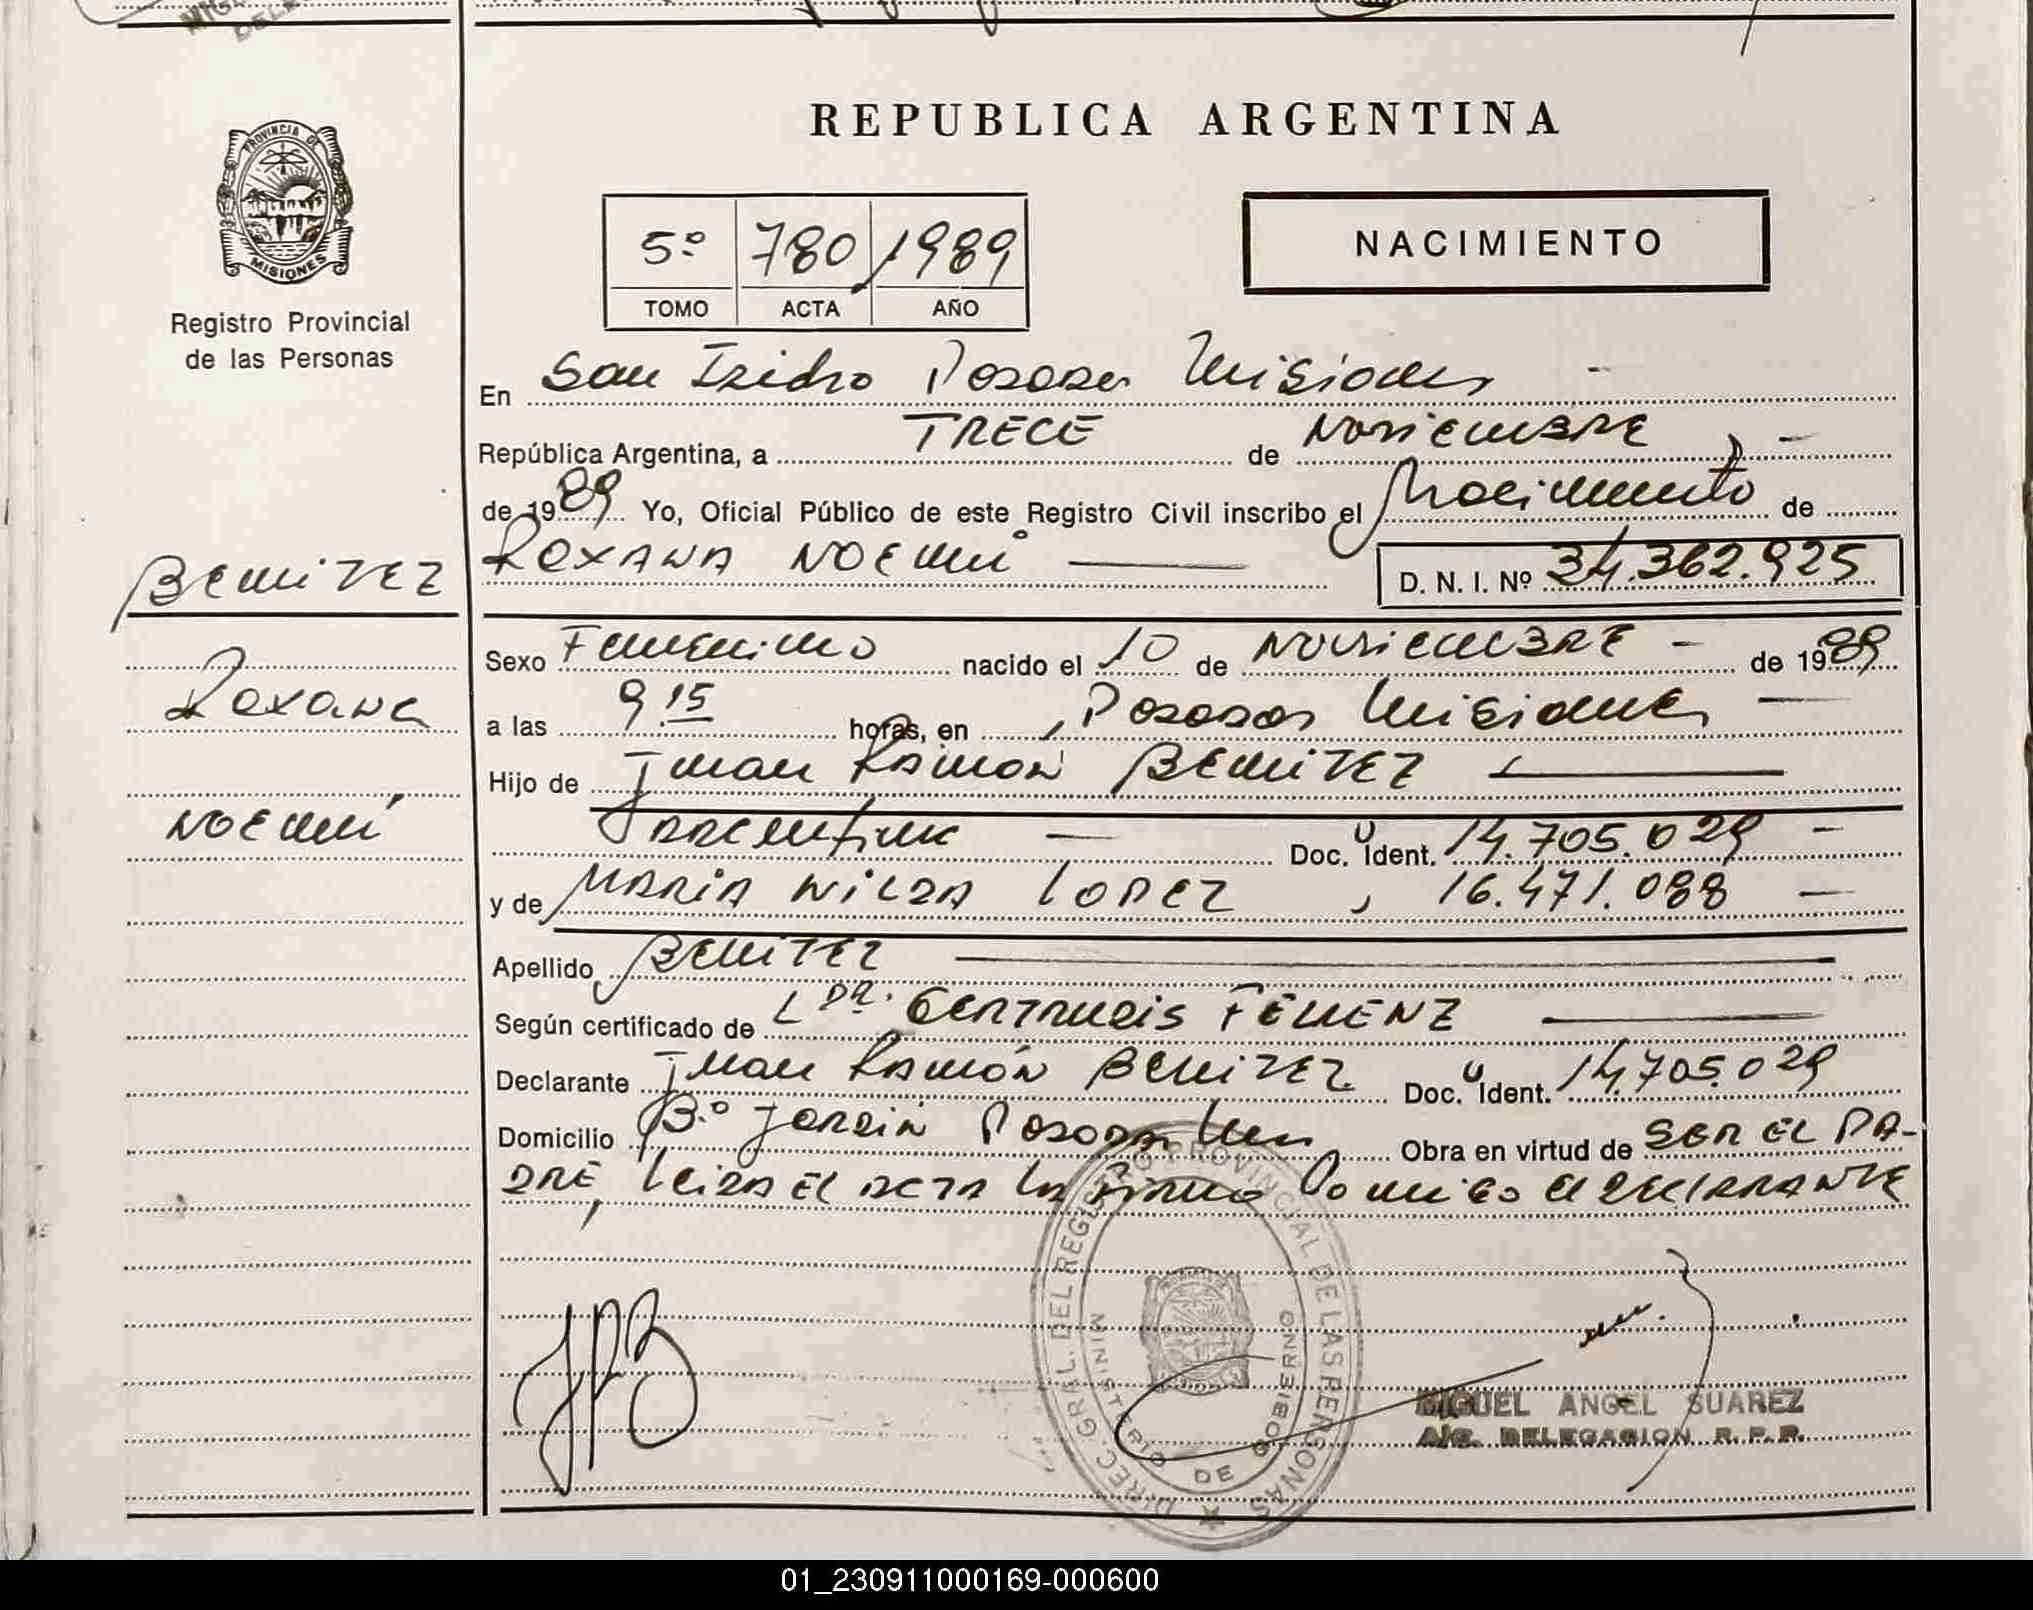 REPUBLICA ARGENTINA
PROVINCIA DE
MISIONES
Registro Provincial
de las Personas
5º 780 1989
TOMO ACTA AÑO
NACIMIENTO
En San Isidro Posadas Misiones -
República Argentina, a TRECE de NOVIEMBRE -
de 1989 Yo, Oficial Público de este Registro Civil inscribo el Nacimiento de
ROXANA NOEMÍ D. N. I. Nº 34.362.925
BENITEZ
Roxana
NOEMÍ
Sexo Femenino nacido el 10 de NOVIEMBRE - de 1989
a las 9 15 horas, en Posadas Misiones
Hijo de Juan Ramón BENITEZ
Argentina - Doc. Ident. 14.705.029 -
y de MARIA NILDA LOPEZ , 16.471.088 -
Apellido BENITEZ
Según certificado de LDA. GERTRUDIS
Declarante Juan Ramón BENITEZ Doc. Ident. 14.705.029
Domicilio Bº Jardin Posadas Mnes Obra en virtud de SER EL PA-
DRE, leida el acta la firma conmigo el declarante
DIREC. GRAL. DEL REGISTRO PROVINCIAL DE LAS PERSONAS
MINISTERIO DE GOBIERNO
JRB
MIGUEL ANGEL SUAREZ
A/C. DELEGACION R. P. P.
01_230911000169-000600